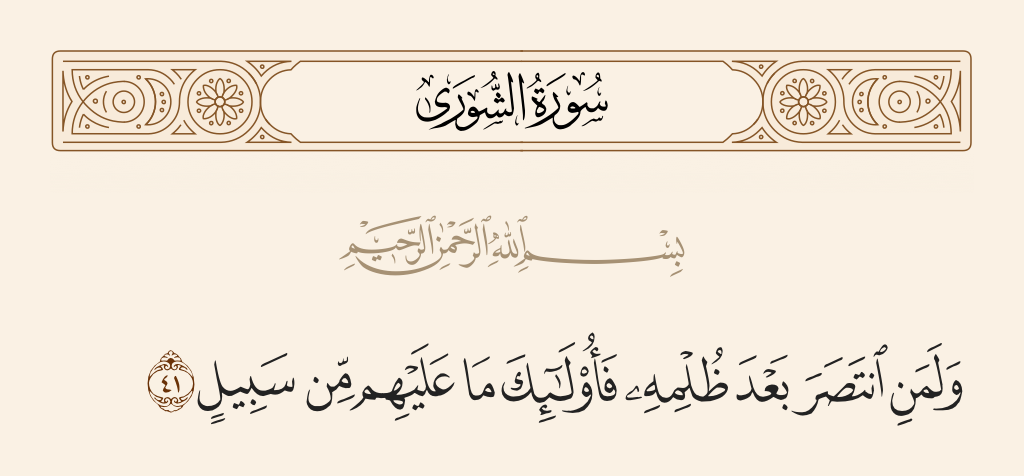 سُورَةُ الشُّورَىٰ
بِسْمِ ٱللَّهِ ٱلرَّحْمَٰنِ ٱلرَّحِيمِ
وَلَمَنِ ٱنتَصَرَ بَعْدَ ظُلْمِهِۦ فَأُو۟لَـٰٓئِكَ مَا عَلَيْهِم مِّن سَبِيلٍ ٤١